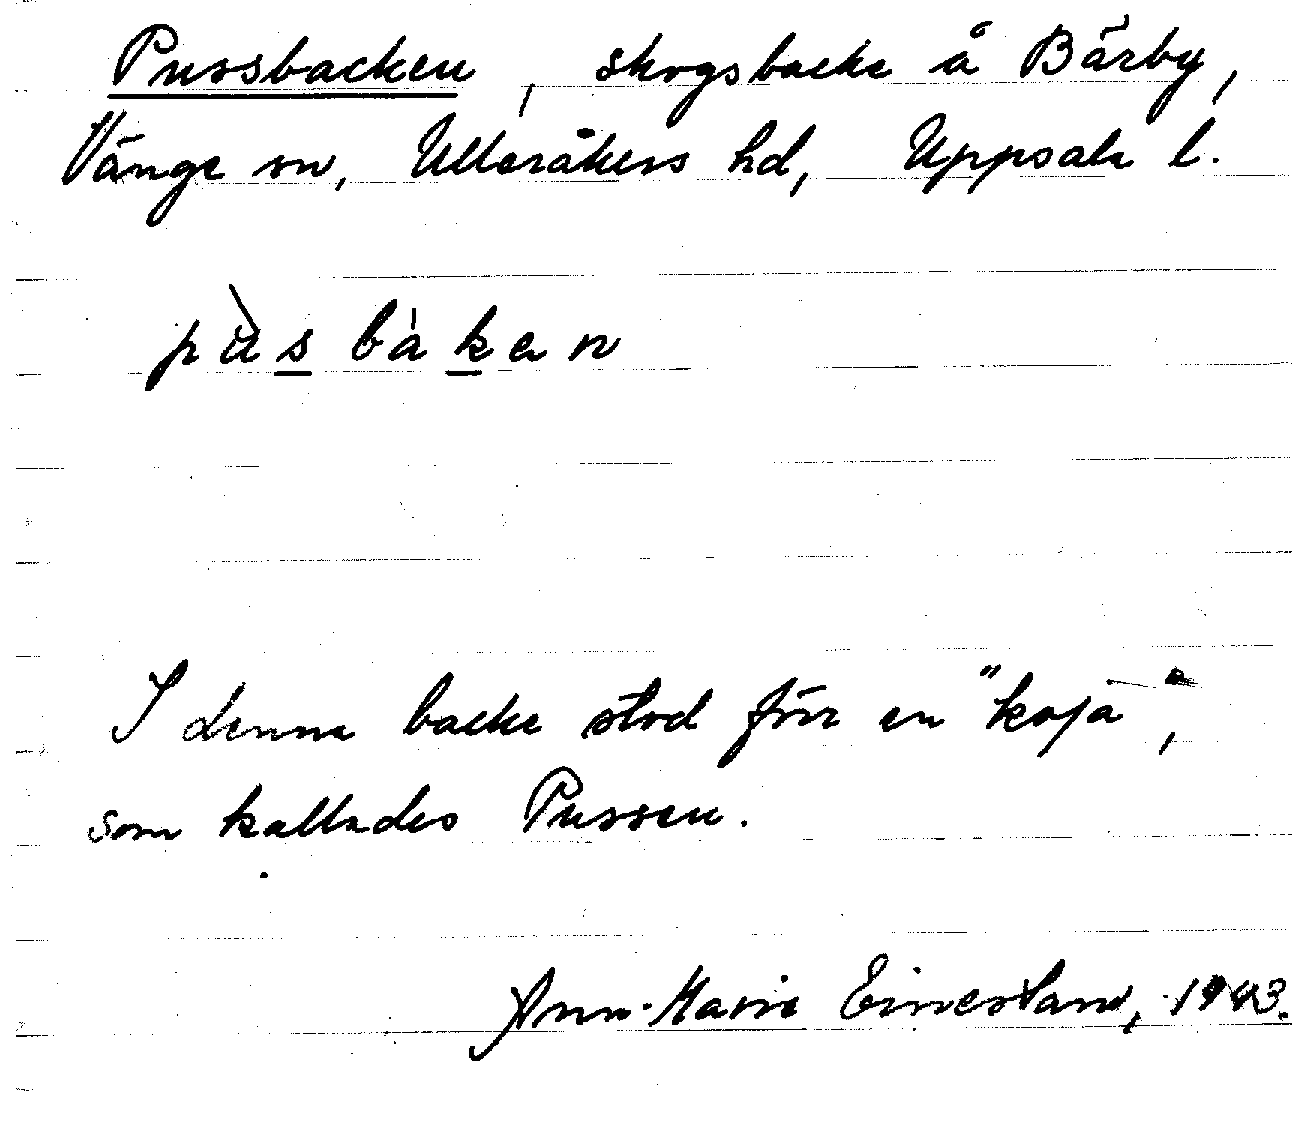 Pussbacken, skogsbacke å Bärby,
Vänge sn, Ulleråkers hd, Uppsala l.
pùs bàkan
I denna backe stod förr en "koja",
som kallades Pussen.
Ann-Marie Einerstam, 1943.